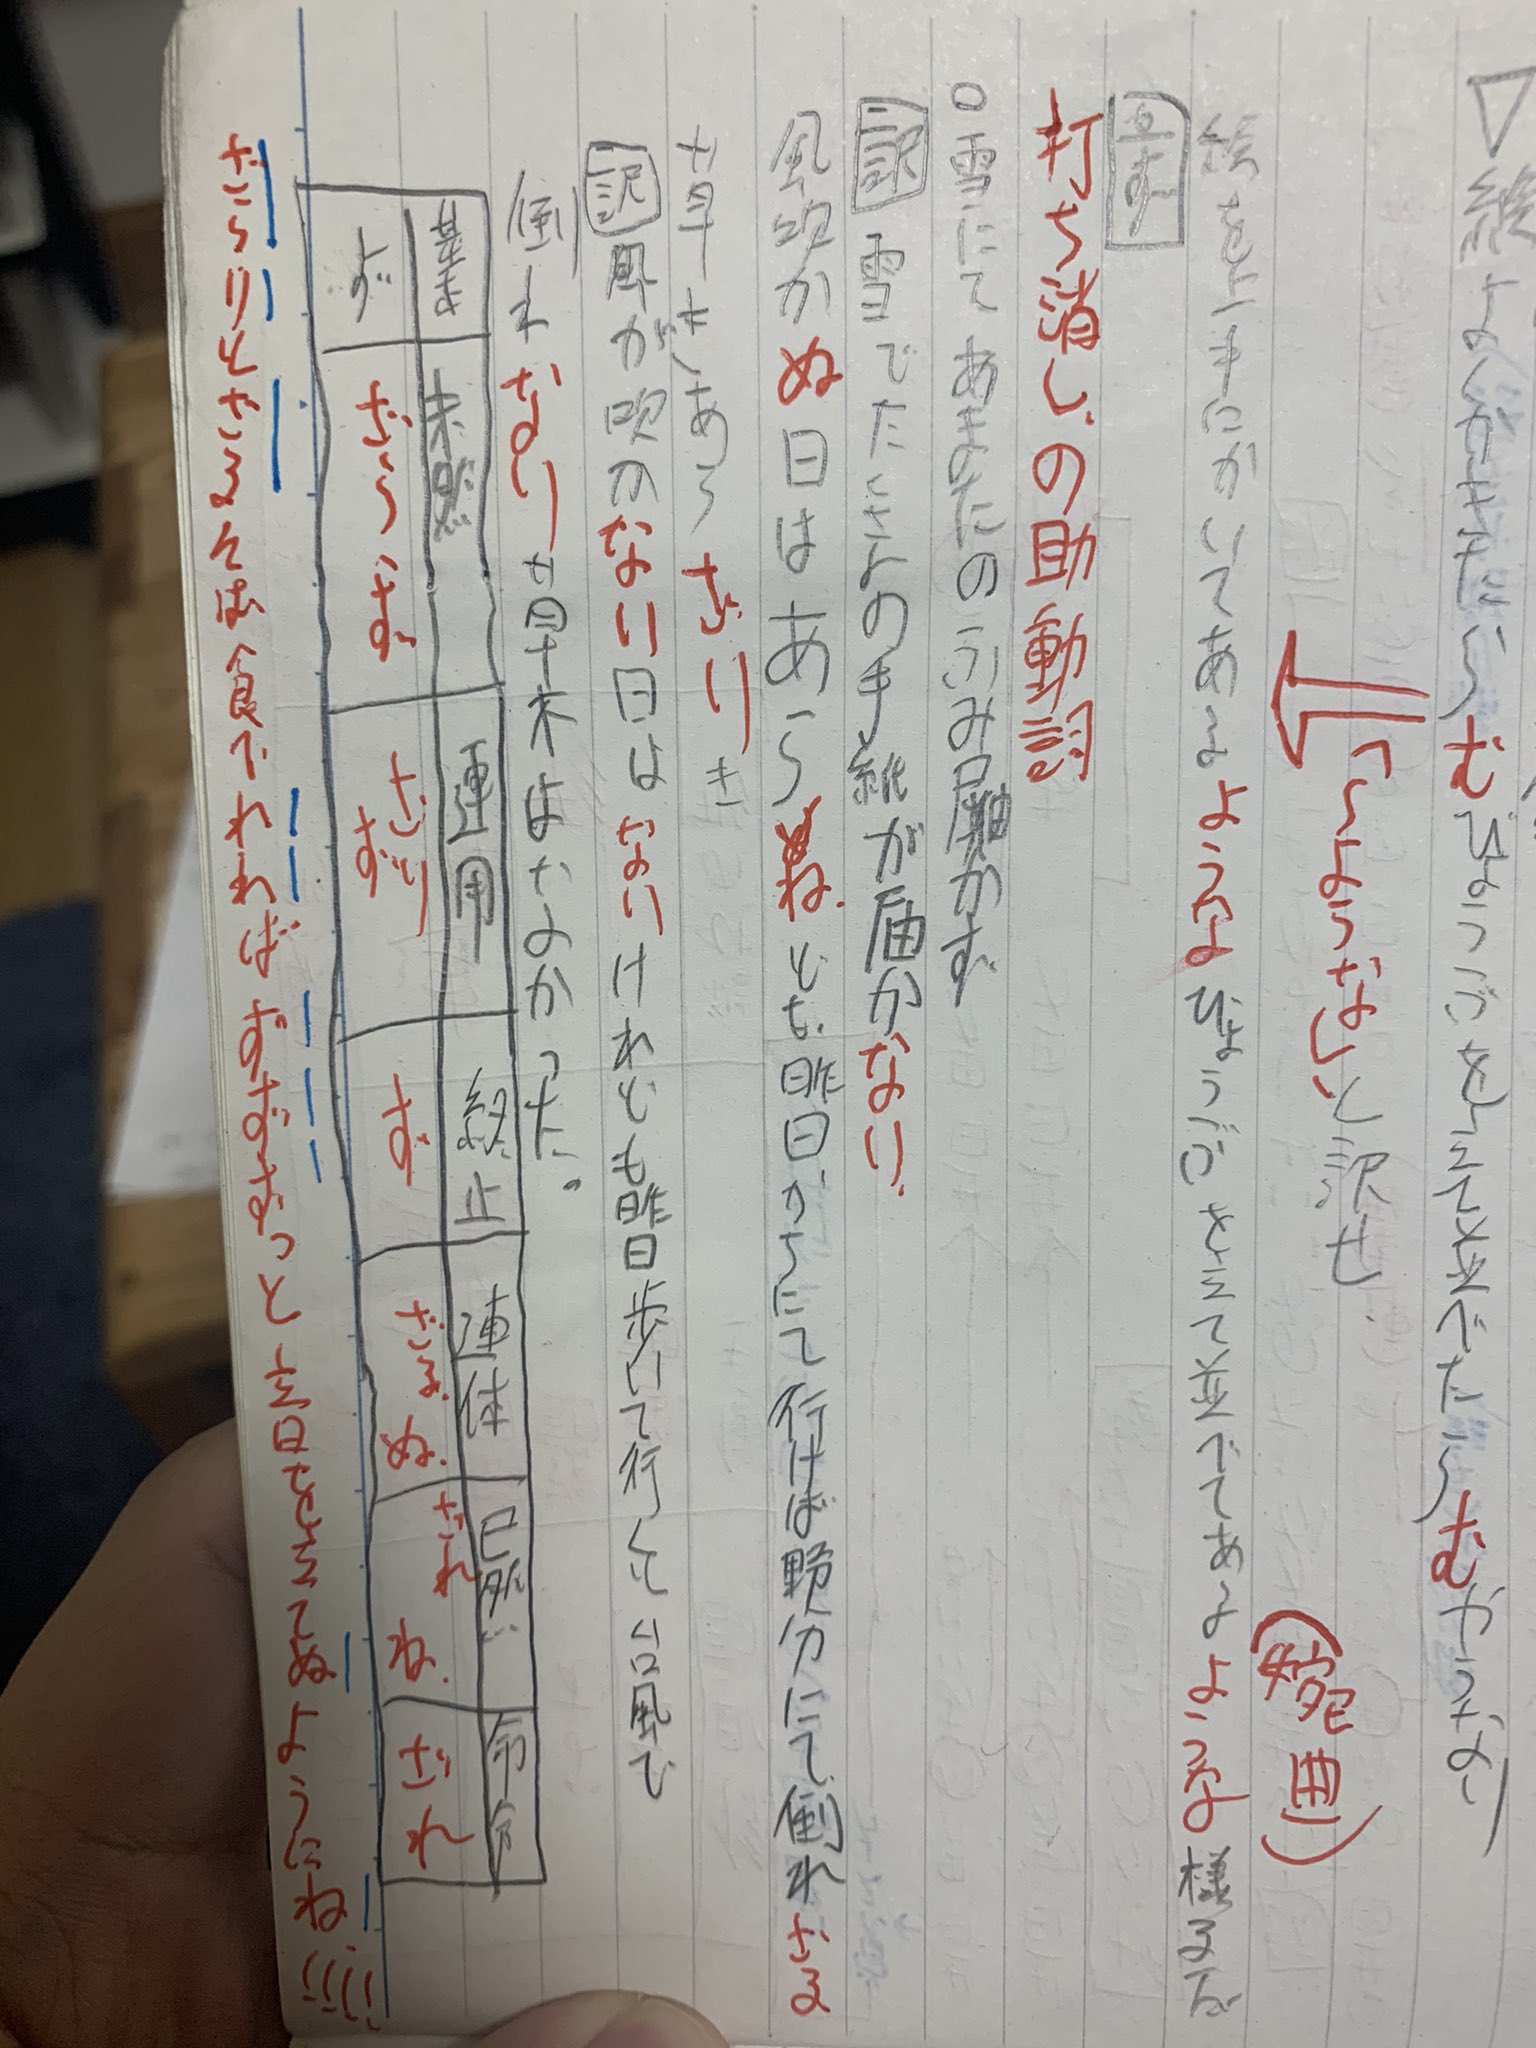 ▽絵よしやせざらむびょうぶをたてたらむやうなり
(婉曲)
「〜ような」と訳せ
絵を上手にかいてあるようなびょうぶをたててあるような様子だ
⑥ず
打ち消しの助動詞
○雪にてあまたのふみ届かず
訳 雪でたくさんの手紙が届かない
風吹かぬ日はあらねども昨日からにて行けば野分にて倒れざる
草木あらざりき
訳 風が吹かない日はないけれども昨日歩いて行くと台風で
倒れない草木はなかった。
基本 未然 運用 終止 連体 已然 命令
ず ざら ず ざり ず ず ざる ぬ ざれ ね ざれ
ざらりとざるそば食べれればずずずっと音をたてぬようにね!!!!